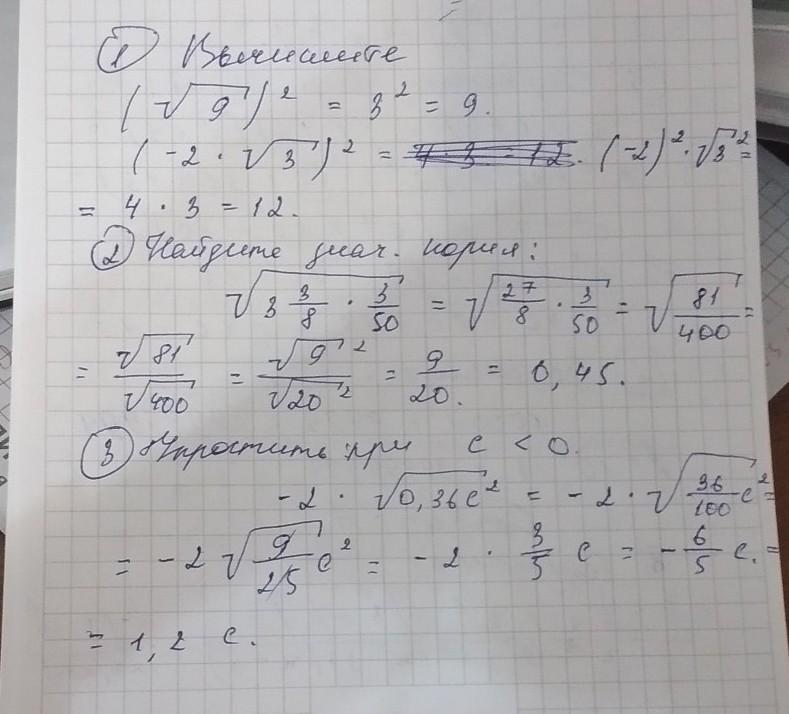 ① Вычислите
(√9)² = 3² = 9.
(-2 · √3)² = 4 · 3 = 12. (-2)² · √3² =
= 4 · 3 = 12.
② Найдите знач. корня:
√(3 3/8 · 3/50) = √(27/8 · 3/50) = √(81/400) =
= √81/√400 = √9²/√20² = 9/20. = 0,45.
③ Упростить при c < 0.
-2 · √(0,36c²) = -2 · √(36/100 c²) =
= -2 √(9/25 c²) = -2 · 3/5 c = -6/5 c. =
= 1,2 c.